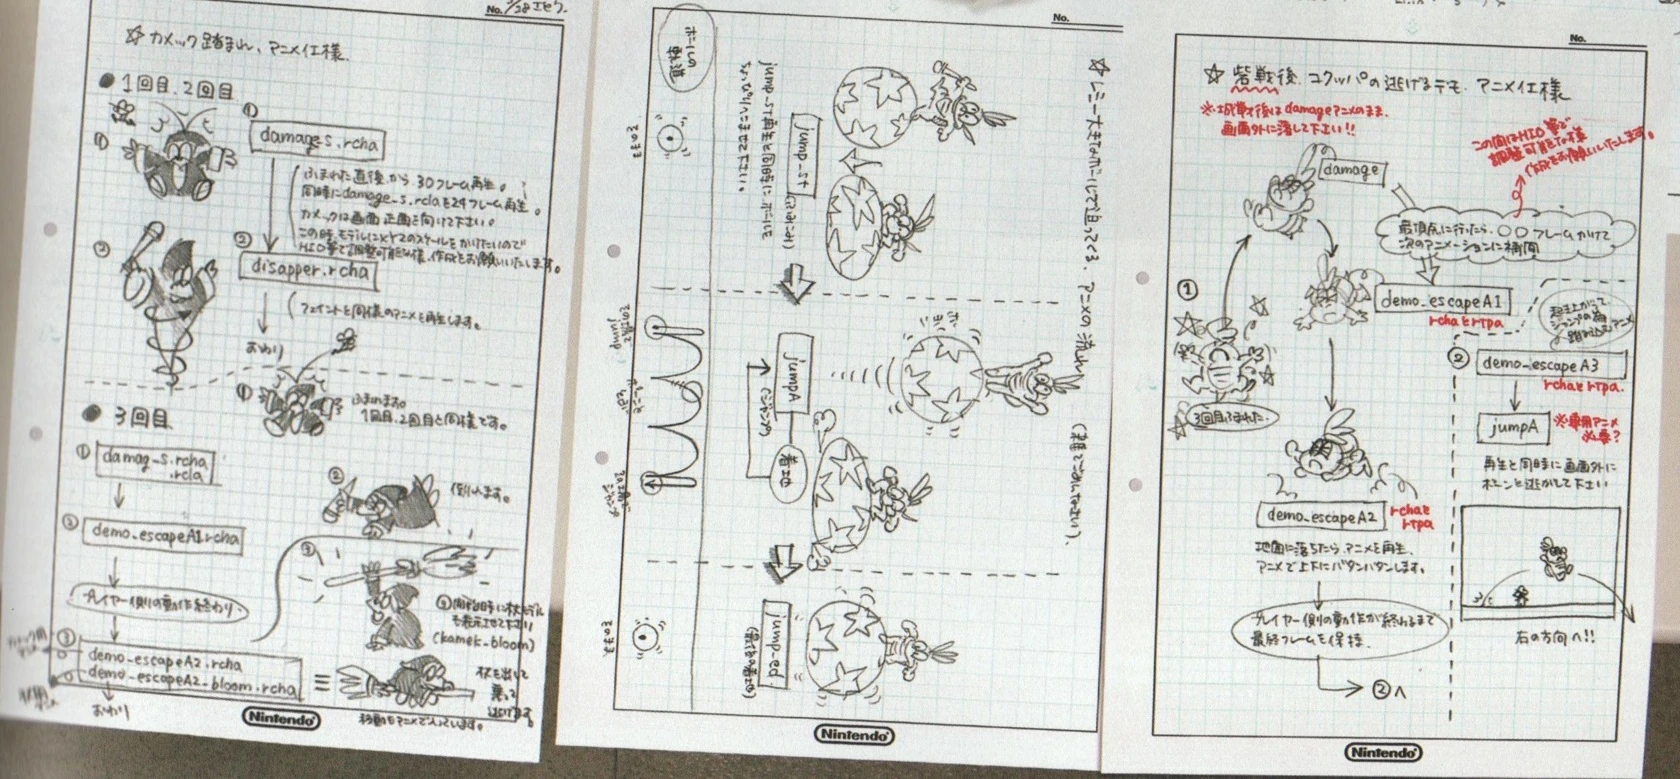 No.
☆ カメック踏まれ、アニメ仕様
● 1回目、2回目
①
①
damage_s.rcha
ふまれた直後から、30フレーム再生。
同時にdamage_s.rclaを24フレーム再生。
カメックは画面正面を向けて下さい。
この時、モデルにXYZのスケールをかけたいので
HIO等で調整可能な様、作成をお願いいたします。
②
②
disapper.rcha
フェイントと同様のアニメを再生します。
おわり
● 3回目
①
ふまれます。
1回目、2回目と同様です。
① damag_s.rcha
.rcla
②
倒れます。
② demo_escapeA1.rcha
プレイヤー側の動作終わり
③
開始時に杖モデル
も表示させて下さい
(kamek_bloom)
③
demo_escapeA2.rcha
demo_escapeA2_bloom.rcha
おわり
杖を出して
乗って
逃げます。
移動もアニメで入っています。
Nintendo
No.
☆ レミー大きなボールで迫ってくる、アニメの流れ
(雑でごめんなさい)、
ボールの
軌道
jump_st
jump_st再生と同時にボールを
jumpA
着地
jump_ed
その場
その場
Nintendo
No.
☆ 砦戦後、コクッパの逃げるデモ、アニメ仕様
※城戦後はdamageアニメのまま、
画面外に落して下さい!!
この間はHIO等で
調整可能な様
作成をお願いいたします。
damage
最頂点に行ったら、○○フレームかけて
次のアニメーションに補間
①
demo_escapeA1
rchaとrtpa
起き上がって、
ジャンプの為
踏み込むアニメ
3回目ふまれた
② demo_escapeA3
rchaとrtpa.
jumpA
※専用アニメ
必要?
再生と同時に画面外に
ポーンと逃がして下さい
demo_escapeA2
rchaと
rtpa
地面に落ちたら、アニメを再生、
アニメで上下にバタンバタンします。
プレイヤー側の動作が終わるまで
最終フレームを保持
②へ
右の方向へ!!
Nintendo